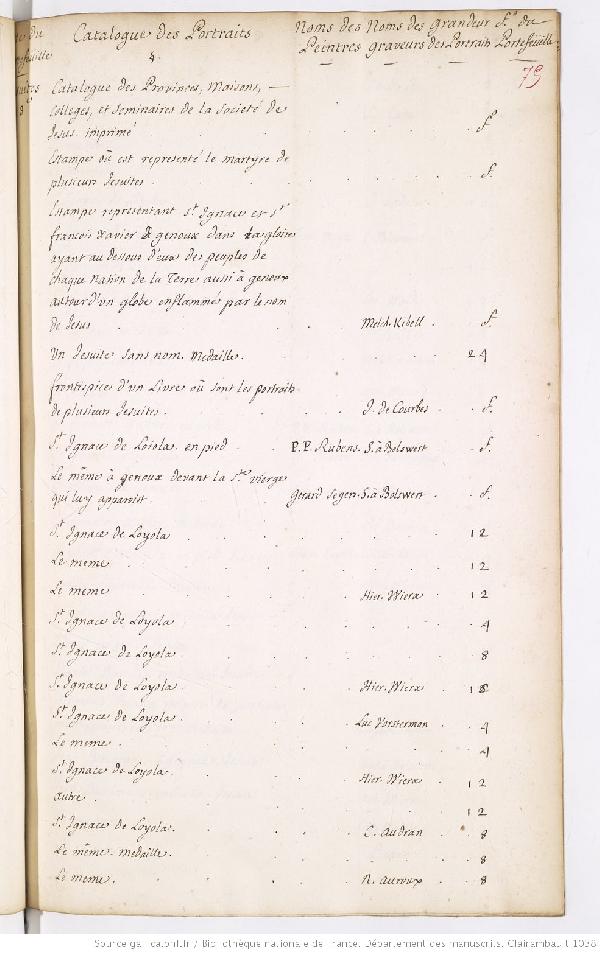 Catalogue des Portraits Noms des Noms des Grandeur f.º du
Peintres graveurs des Portraits Portefeuille
4. 79
Catalogue des Provinces, Maisons,
Colleges, et Seminaires de la Societé de
Jesus. imprimé . . . . fº
Estampe où est representé le martyre de
plusieurs Jesuites . . . . f.
Estampe representant St. Ignace et St.
françois Xavier à genoux dans la gloire
ayant au dessous d'eux des peuples de
chaque nation de la Terre aussi à genoux
autour d'un globe enflammés par le nom
de Jesus . . . Melch. Kibell . f.
Un Jesuite sans nom. Medaille. . . . 24
frontispice d'un Livre où sont les portraits
de plusieurs Jesuites. . . J. de Courbes . f.
St. Ignace de Loiola en pied . . P. P. Rubens. S. à Bolswert . f.
Le même à genoux devant la Ste. vierge
qui luy apparoit. Gerard Segers. S. à Bolswert . f.
St. Ignace de Loyola . . . . 12
Le meme . . . . 12
Le meme . . . Hier. Wierx . 12
St. Ignace de Loyola . . . . 4
St. Ignace de Loyola . . . . 8
St. Ignace de Loyola . . . Hier. Wierx . 18
St. Ignace de Loyola . . . Luc Vorsterman . 4
Le meme . . . . 4
St. Ignace de Loyola . . . Hier. Wierx . 12
autre . . . . 12
St. Ignace de Loyola. . . C. Audran . 8
Le même. medaille. . . . 8
Le meme. . . . R. Auroux . 8
Source gallica.bnf.fr / Bibliothèque nationale de France. Département des manuscrits. Clairambault 1038